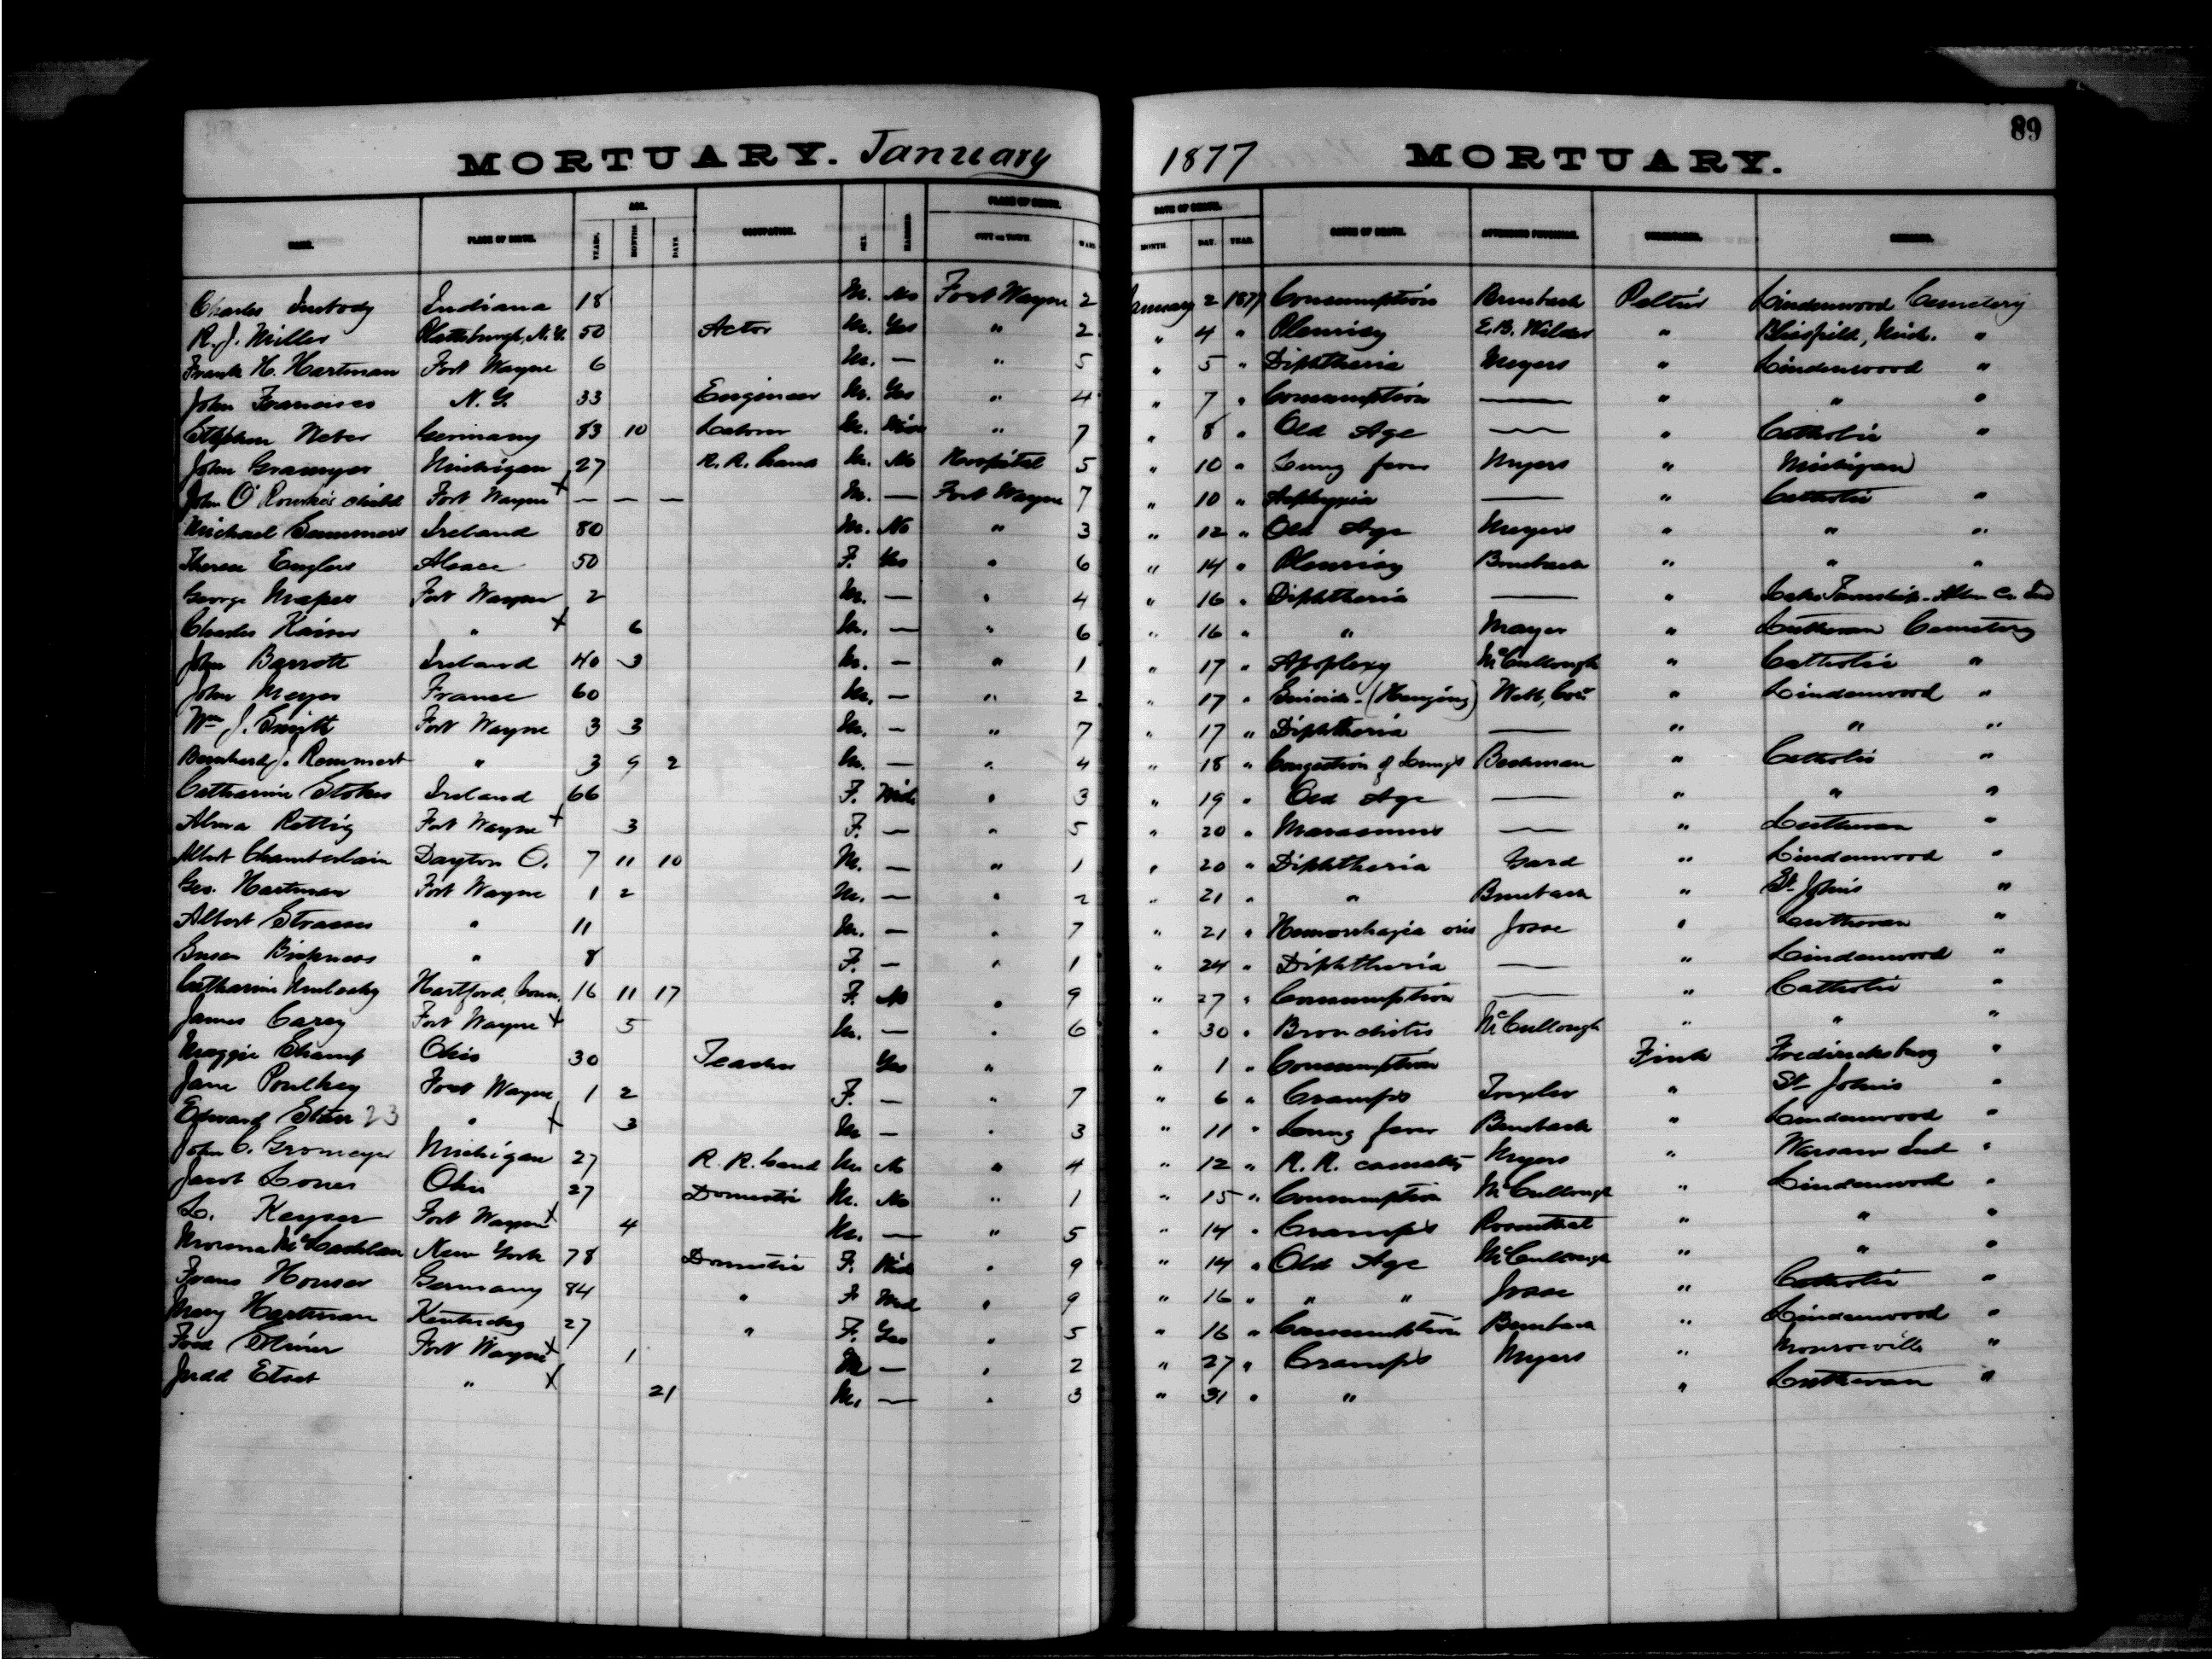 89
MORTUARY. January 1877 MORTUARY.
AGE. PLACE OF DEATH. DATE OF DEATH.
NAME. PLACE OF BIRTH. YEARS. MONTHS. DAYS. OCCUPATION. SEX. MARRIED. CITY OR TOWN. WARD MONTH. DAY. YEAR. CAUSE OF DEATH. ATTENDING PHYSICIAN. UNDERTAKER. REMARKS.
Charles Indiana 18 M. No Fort Wayne 2 January 2 1877 Consumption Peltier Lindenwood Cemetery
R. J. Miller Plattsburgh, N. Y. 50 Actor M. Yes " 2 " 4 " Pleurisy E. B. Wilder " Blissfield, Mich. "
Frank H. Hartman Fort Wayne 6 M. — " 5 " 5 " Diphtheria Meyers " Lindenwood "
John Francisco N. Y. 33 Engineer M. Yes " 4 " 7 " Consumption — " " "
Stephen Weber Germany 83 10 Laborer M. " 7 " 8 " Old Age — " Catholic "
John Gramyer Michigan 27 R. R. hand M. No Hospital 5 " 10 " Lung fever Myers " Michigan
John O'Rourke's child Fort Wayne + — — — M. — Fort Wayne 7 " 10 " Asphyxia — " Catholic "
Michael Sammers Ireland 80 M. No " 3 " 12 " Old Age Meyers " " "
Therese Englers Alsace 50 F. Yes " 6 " 14 " Pleurisy " " "
George Mapes Fort Wayne 2 M. — " 4 " 16 " Diphtheria — " Lake Township - Allen Co. Ind
Charles Kaiser " + 6 M. — " 6 " 16 " " Mayer " Lutheran Cemetery
John Barrott Ireland 40 3 M. — " 1 " 17 " Apoplexy McCullough " Catholic "
John Meyer France 60 M. — " 2 " 17 " Suicide - (Hanging) " Lindenwood "
Wm J. Smith Fort Wayne 3 3 M. — " 7 " 17 " Diphtheria — " " "
Bernhard J. Rommert " 3 9 2 M. — " 4 " 18 " Congestion of Lungs " Catholic "
Catharine Stokes Ireland 66 F. Wid " 3 " 19 " Old Age — " " "
Alma Rettig Fort Wayne + 3 F. — " 5 " 20 " Marasmus — " Lutheran "
Albert Chamberlain Dayton O. 7 11 10 M. — " 1 " 20 " Diphtheria Gard " Lindenwood "
Geo. Hartman Fort Wayne 1 2 M. — " 2 " 21 " " " St. Johns "
Albert Strasser " 11 M. — " 7 " 21 " Hemorrhagia oris " Lutheran "
Susan " 8 F. — " 1 " 24 " Diphtheria — " Lindenwood "
Catharine Hartford, Conn. 16 11 17 F. No " 9 " 27 " Consumption — " Catholic "
James Carey Fort Wayne + 5 M. — " 6 " 30 " Bronchitis McCullough " " "
Maggie Shamp Ohio 30 Teacher Yes " " 1 " Consumption Fink Fredericksburg "
Jane Fort Wayne 1 2 F. — " 7 " 6 " Cramps " St. Johns "
Edward Starr 23 " + 3 M — " 3 " 11 " Lung fever " Lindenwood "
John C. Gromeyer Michigan 27 R. R. hand M. No " 4 " 12 " R. R. casualty Myers " Warsaw Ind "
Jacob Lones Ohio 27 Domestic M. No " 1 " 15 " Consumption McCullough " Lindenwood "
L. Keyser Fort Wayne + 4 M. — " 5 " 14 " Cramps Rosenthal " " "
New York 78 Domestic F. Wid " 9 " 14 " Old Age McCullough " " "
Frans Houser Germany 84 " F Wid " 9 " 16 " " " " Catholic "
Mary Hartman Kentucky 27 " F. Yes " 5 " 16 " Consumption " Lindenwood "
Fort Wayne + 1 M — " 2 " 27 " Cramps Myers " Monroeville "
Judd " + 21 M. — " 3 " 31 " " " Lutheran "